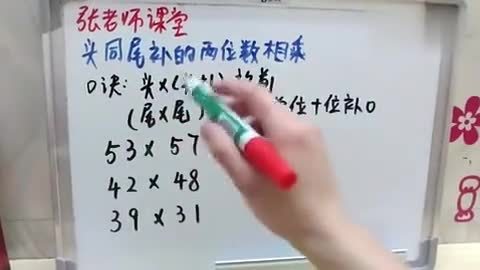 张老师课堂
头同尾补的两位数相乘
口诀: 头×(
(尾×尾) 单位十位补0
53 × 57
42 × 48
39 × 31